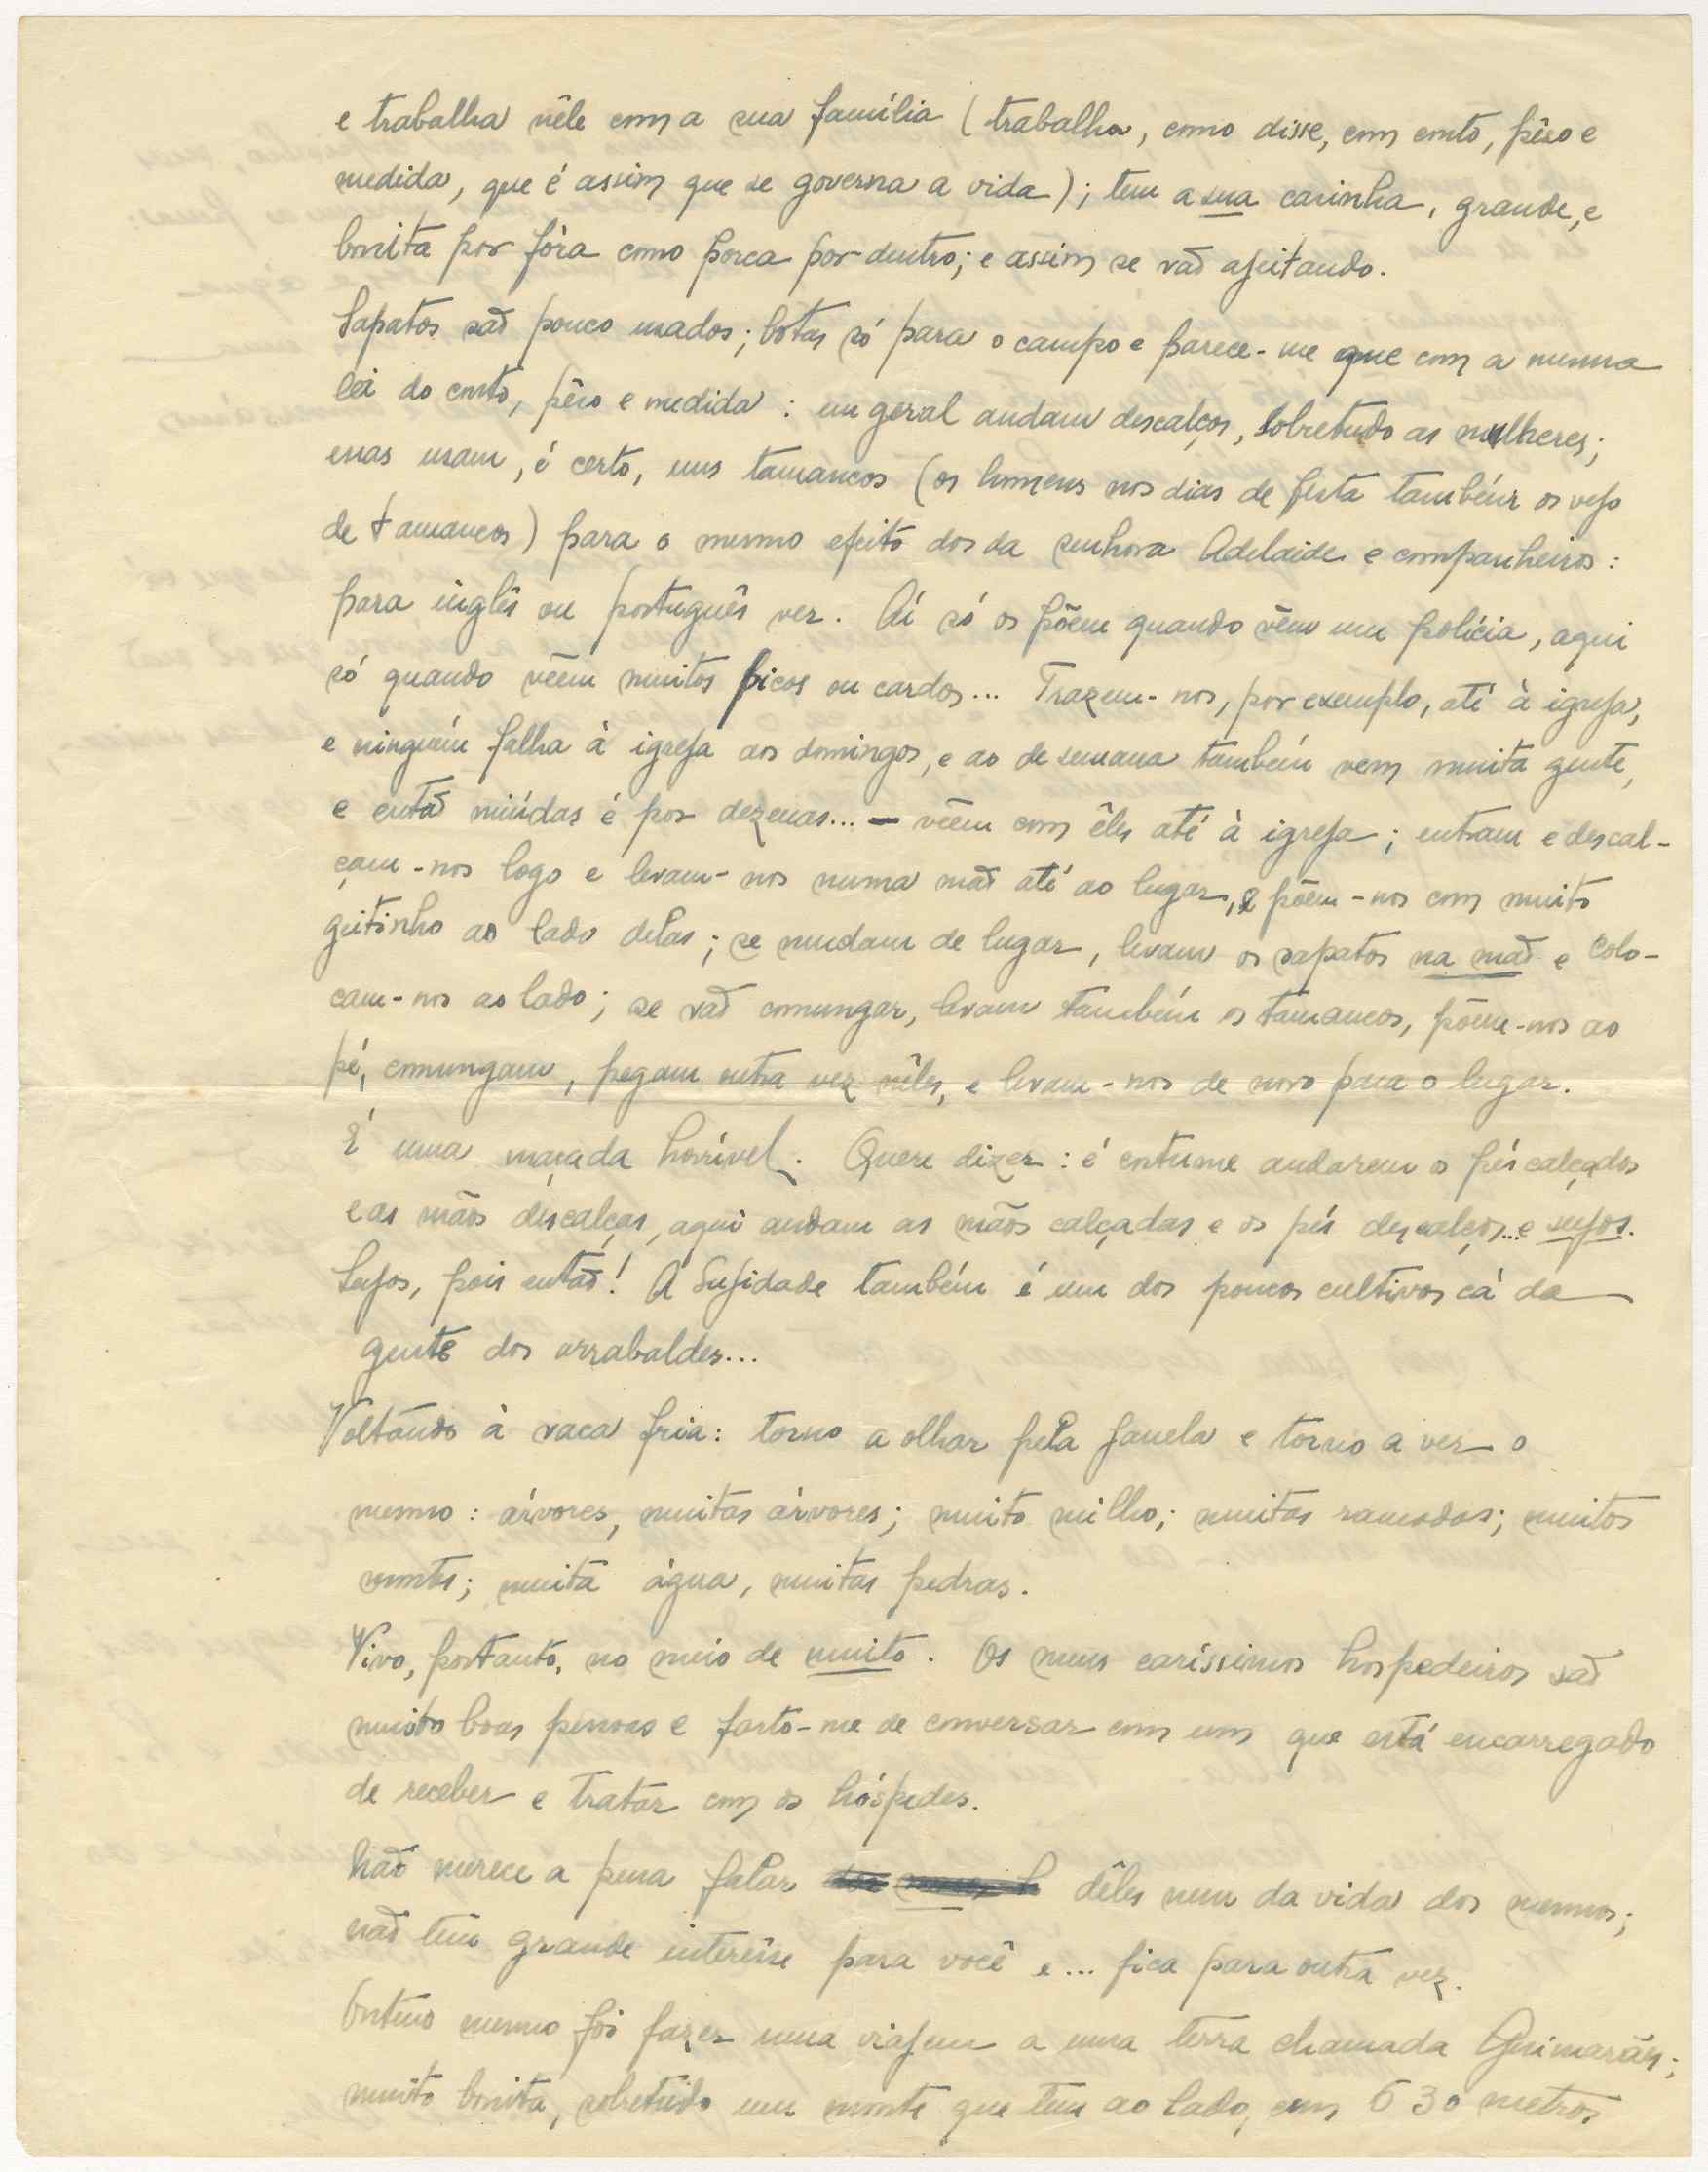 e trabalha nêle com a sua família (trabalha, como disse, com conto, pêso e
medida, que é assim que se governa a vida); tem a sua casinha, grande, e
bonita por fóra como porca por dentro; e assim se vão ajeitando.
Sapatos são pouco usados; botas só para o campo e parece-me que com a mesma
lei do conto, pêso e medida: em geral andam descalços, sobretudo as mulheres;
essas usam, é certo, uns tamancos (os homens nos dias de festa também os vejo
de tamancos) para o mesmo efeito dos da senhora Adelaide e companheiros:
para inglês ou português ver. Aí só os põem quando vêm um polícia, aqui
só quando vêem muitos picos ou cardos... Trazem-nos, por exemplo, até à igreja,
e ninguém falha à igreja aos domingos, e ao de semana também vem muita gente,
e então miúdas é por dezenas... - vêem com êles até à igreja; entram e descal-
çam-nos logo e levam-nos numa mão até ao lugar, e põem-nos com muito
geitinho ao lado delas; se mudam de lugar, levam os sapatos na mão e colo-
cam-nos ao lado; se vão comungar, levam também os tamancos, põem-nos ao
pé, comungam, pegam outra vez nêles, e levam-nos de novo para o lugar.
É uma maçada horrível. Quere dizer: é costume andarem os pés calçados
e as mãos descalças, aqui andam as mãos calçadas e os pés descalços... e sujos.
Sujos, pois então! A Sujidade também é um dos poucos cultivos cá da
gente dos arrabaldes...
Voltando à vaca fria: torno a olhar pela janela e torno a ver o
mesmo: árvores, muitas árvores; muito milho; muitas ramadas; muitos
montes; muita água, muitas pedras.
Vivo, portanto, no meio de muito. Os meus caríssimos hospedeiros são
muito boas pessoas e farto-me de conversar com um que está encarregado
de receber e tratar com os hóspedes.
Não merece a pena falar dêles nem da vida dos mesmos;
não tem grande interêsse para você e... fica para outra vez.
Ontem mesmo foi fazer uma viajem a uma terra chamada Guimarães;
muito bonita, sobretudo um monte que tem ao lado, com 630 metros